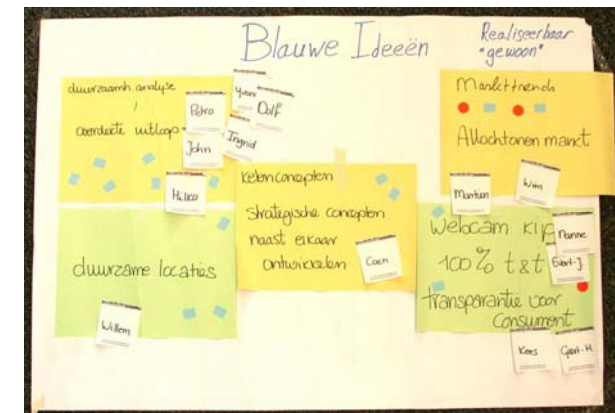 Blauwe Ideeën
Realiseerbaar
"gewoon"
duurzaamh. analyse
/
overdekte uitloop
Petro
Yvonne
Dolf
John
Ingrid
Hilko
duurzame locaties
Willem
ketenconcepten
strategische concepten
naast elkaar
ontwikkelen
Coen
Markttrends
Allochtonen markt
Martien
Wim
Webcam kip
Nanne
100% t&t
Evert-J.
transparantie voor
Consument
Kees
Gert-H.